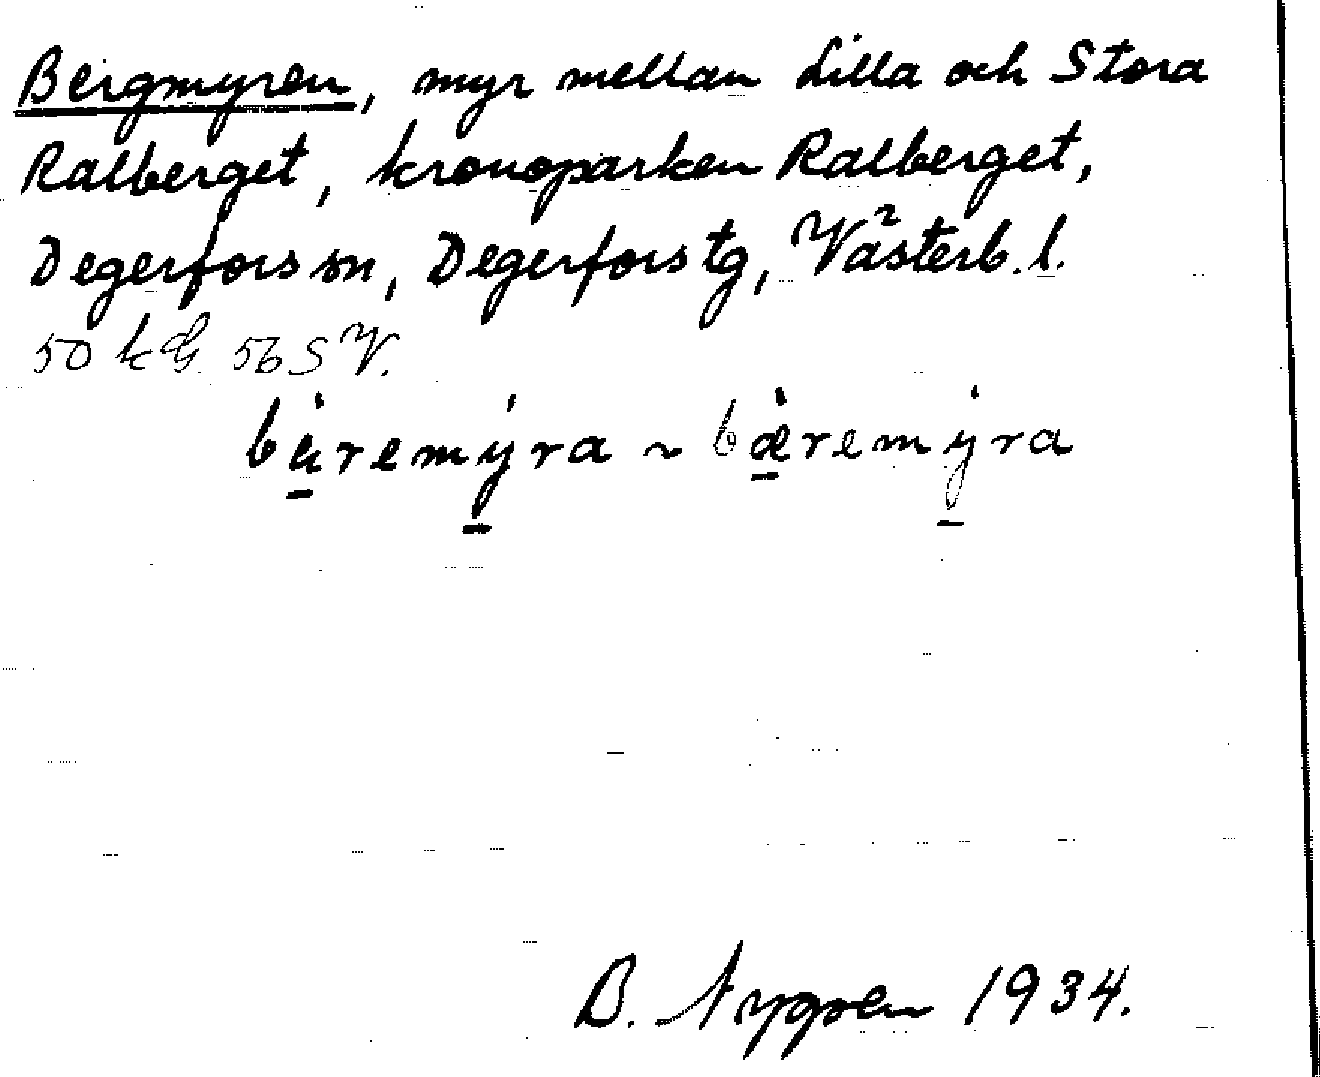 Bergmyren, myr mellan Lilla och Stora
Ralberget, kronoparken Ralberget,
Degerfors sn, Degerfors tg, Västerb. l.
50 kG 56 S V.
bäremyra ~ bæremyra
B. Nygren 1934.